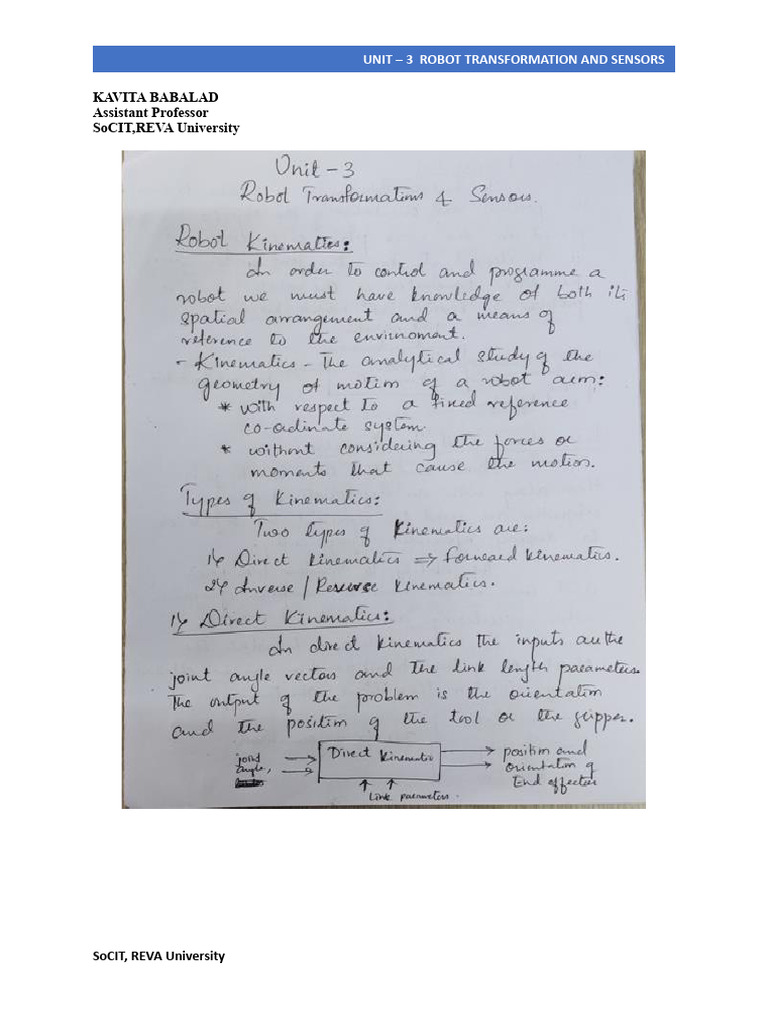 UNIT – 3 ROBOT TRANSFORMATION AND SENSORS
KAVITA BABALAD
Assistant Professor
SoCIT,REVA University
Unit - 3
Robot Transformations & Sensors.
Robot Kinematics:
In order to control and programme a
robot we must have knowledge of both its
spatial arrangement and a means of
reference to the envirnoment.
- Kinematics - The analytical study of the
geometry of motion of a robot arm:
* with respect to a fixed reference
co-ordinate system.
* without considering the forces or
moments that cause the motion.
Types of Kinematics:
Two types of Kinematics are:
1) Direct kinematics => forward kinematics.
2) Inverse / Reverse kinematics.
1) Direct Kinematics:
In direct kinematics the inputs are the
joint angle vectors and the link length parameters.
The output of the problem is the orientation
and the position of the tool or the gripper.
joint
angle,
Direct Kinematic
position and
orientation of
End effector
Link parameters.
SoCIT, REVA University